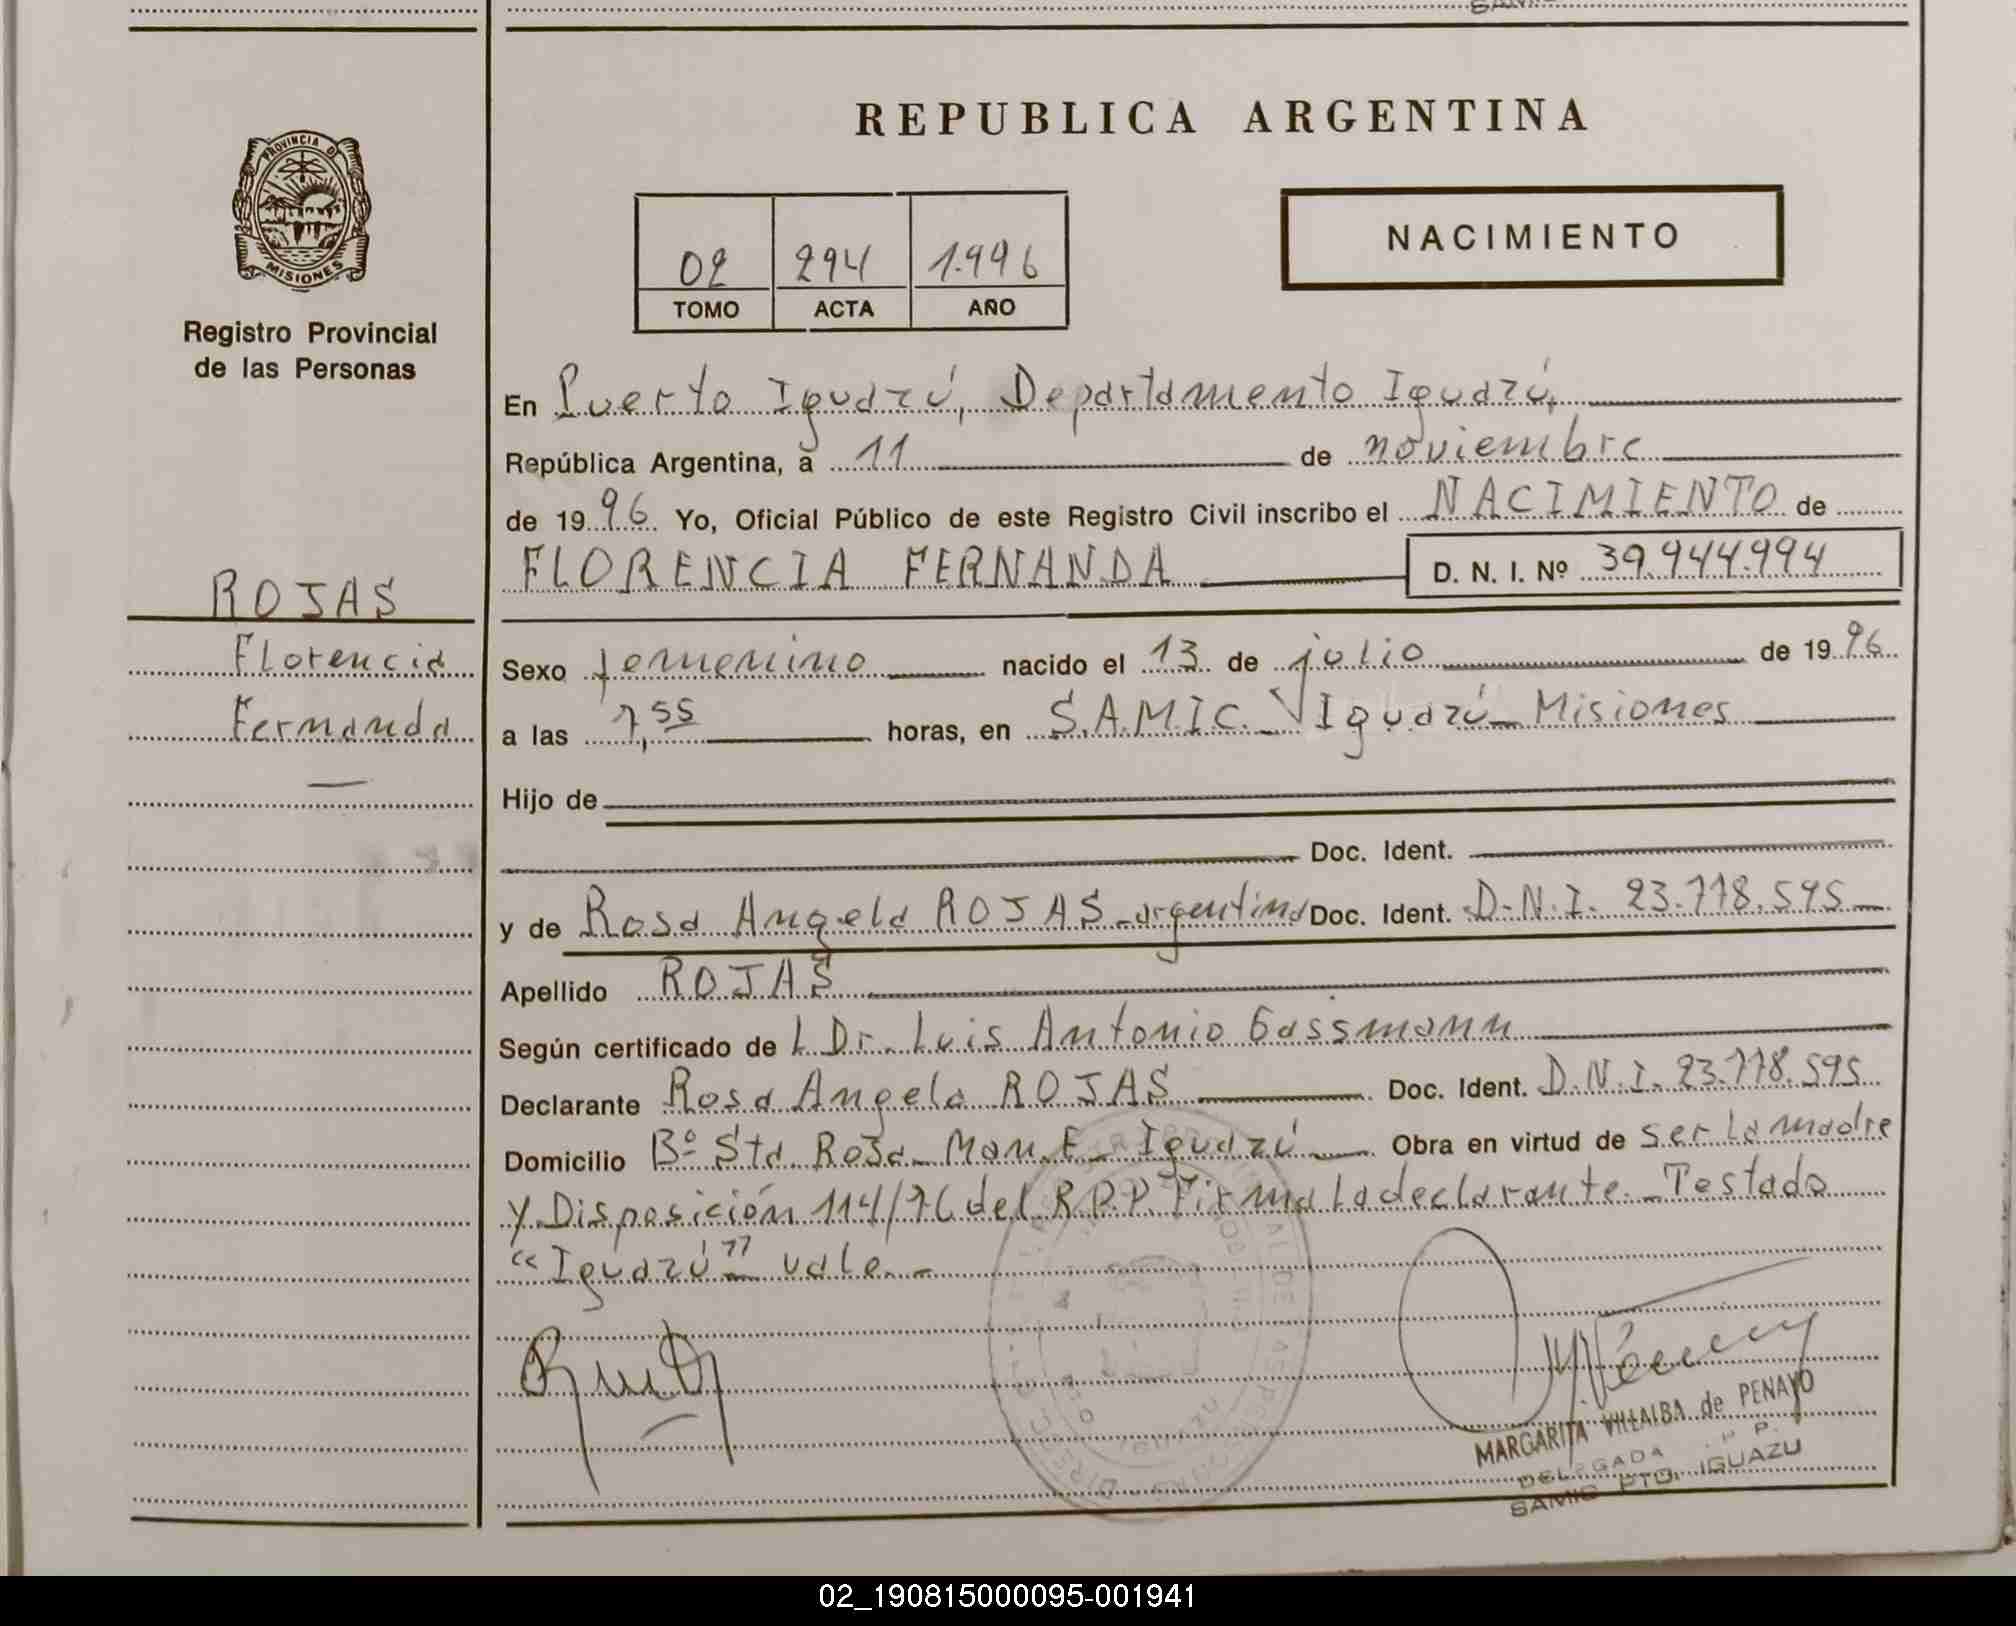 REPUBLICA ARGENTINA
PROVINCIA D
MISIONES
Registro Provincial
de las Personas
02 294 1.996
TOMO ACTA AÑO
NACIMIENTO
En Puerto Iguazú, Departamento Iguazú,
República Argentina, a 11 de noviembre
de 1996 Yo, Oficial Público de este Registro Civil inscribo el NACIMIENTO de
FLORENCIA FERNANDA D. N. I. Nº 39.944.994
ROJAS
Florencia
Fernanda
Sexo femenino nacido el 13 de julio de 1996
a las 7,55 horas, en S.A.M.I.C. Iguazú Misiones
Hijo de
Doc. Ident.
y de Rosa Angela ROJAS argentina Doc. Ident. D.N.I. 23.778.595
Apellido ROJAS
Según certificado de L Dr. Luis Antonio Gassmann
Declarante Rosa Angela ROJAS Doc. Ident. D.N.I. 23.778.595
Domicilio Bº Sta. Rosa Man. E Iguazú Obra en virtud de ser la madre
y Disposición 114/96 del R.P.P. Firma la declarante. Testado
"Iguazú" vale.-
MARGARITA VILLALBA de PENAYO
DELEGADA
SAMIC PTO. IGUAZU
02_190815000095-001941